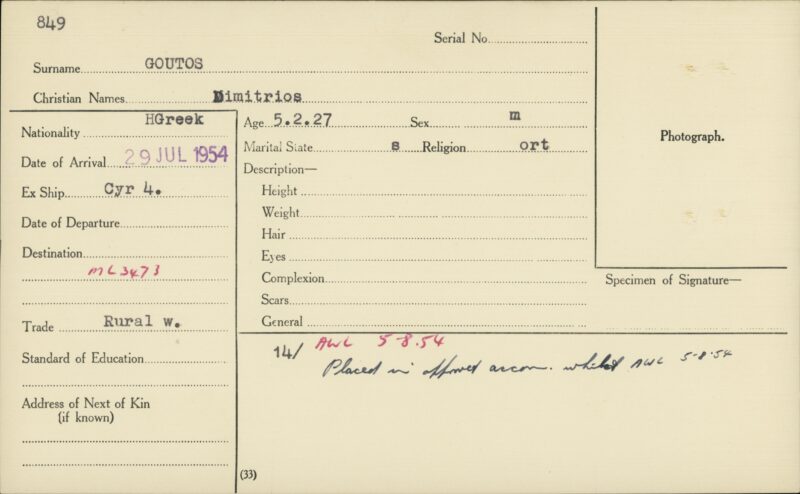 849
Serial No.
Surname GOUTOS
Christian Names Dimitrios
Nationality HGreek
Date of Arrival 29 JUL 1954
Ex Ship Cyr 4.
Date of Departure
Destination
ML3473
Trade Rural w.
Standard of Education
Address of Next of Kin
(if known)
Age 5.2.27 Sex m
Marital State s Religion ort
Description—
Height
Weight
Hair
Eyes
Complexion
Scars
General
Photograph.
Specimen of Signature—
14/ AWL 5-8.54
Placed in accom. whilst AWL 5-8-54
(33)